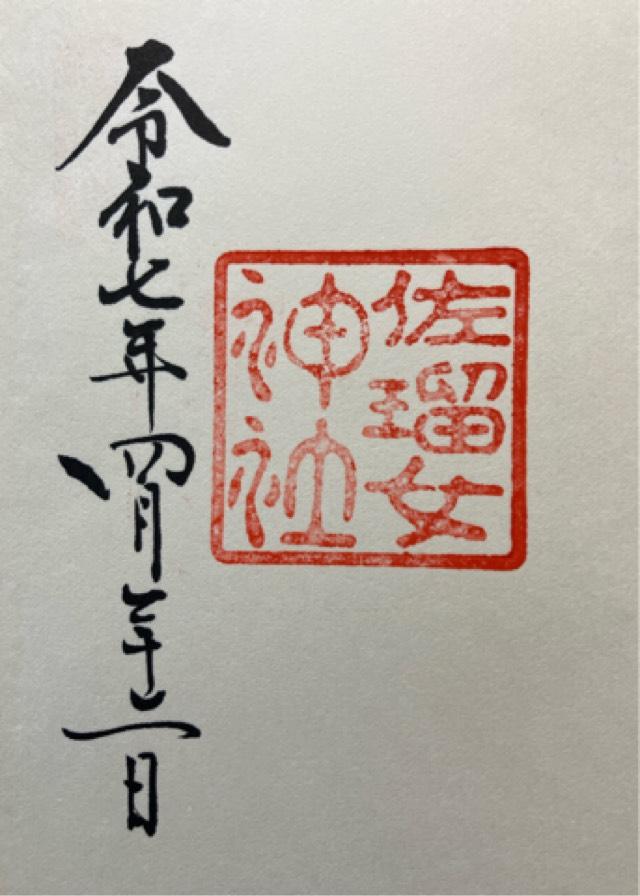 佐瑠女
神社
令和七年四月二十二日